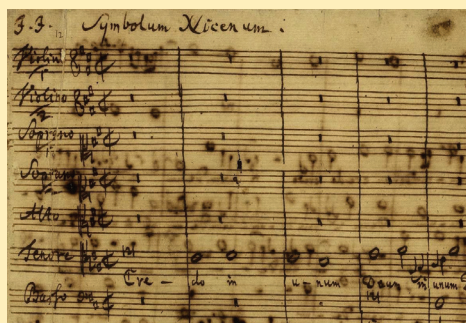 J. J. Symbolum Nicenum:
Violino 1
Violino 2
Soprano 1
Soprano 2
Alto
Tenore
Cre - do in u - num Deum in unum
Basso